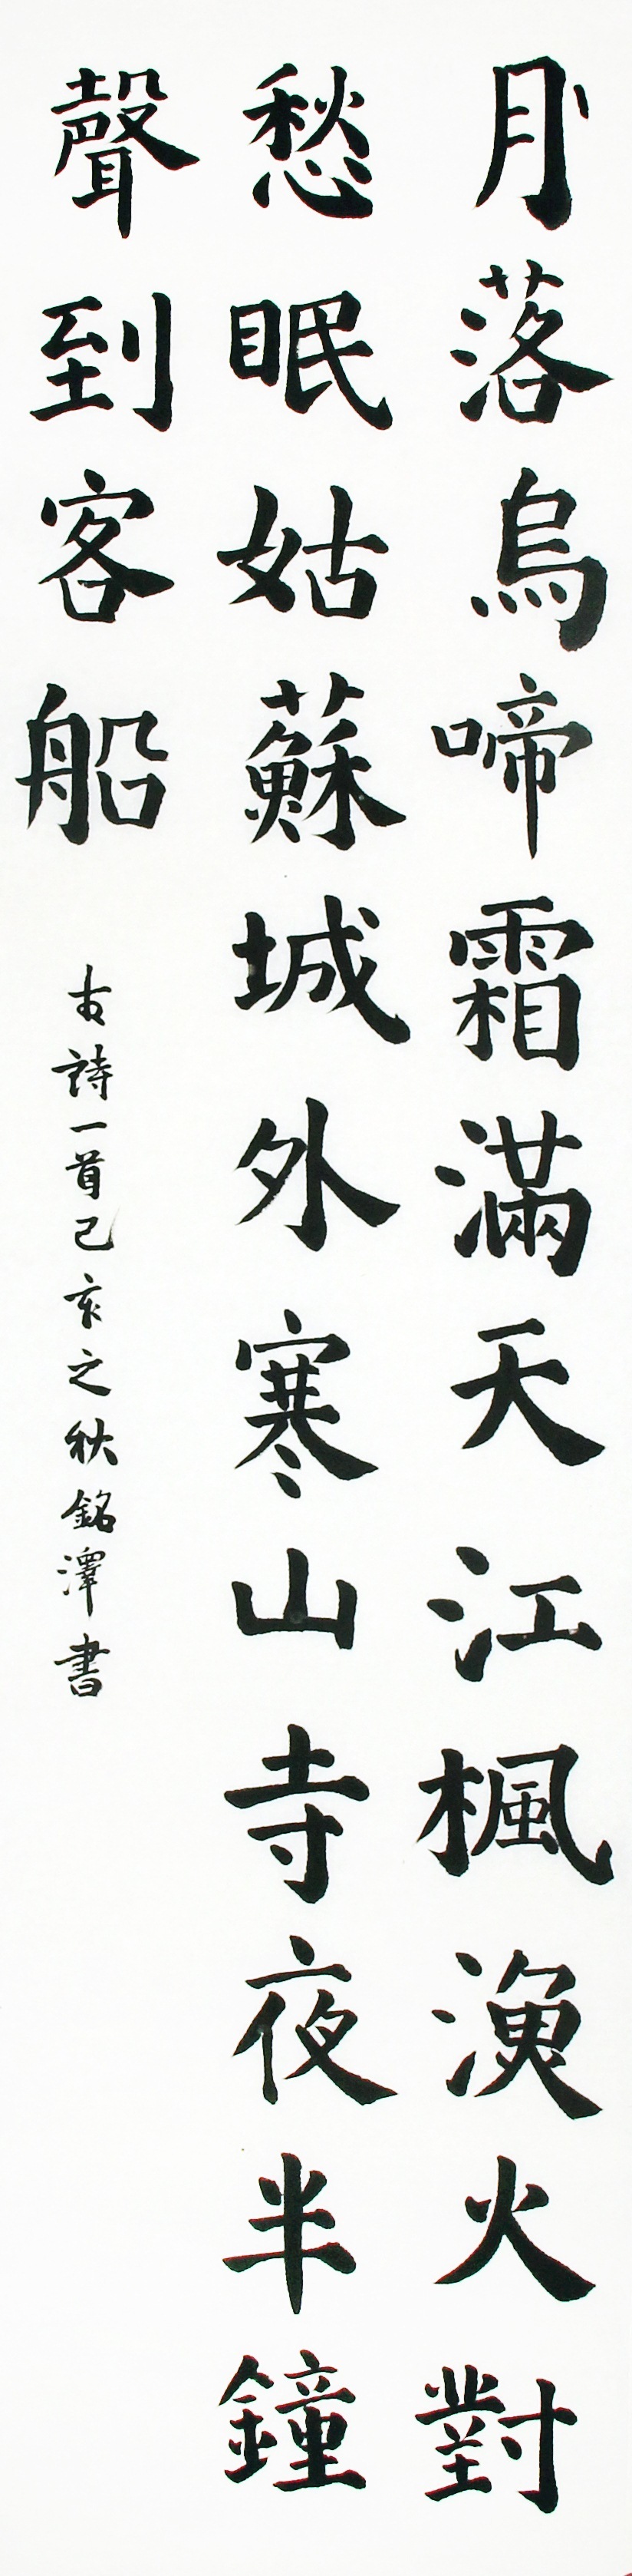 月落烏啼霜滿天江楓漁火對
愁眠姑蘇城外寒山寺夜半鐘
聲到客船
古詩一首己亥之秋銘澤書